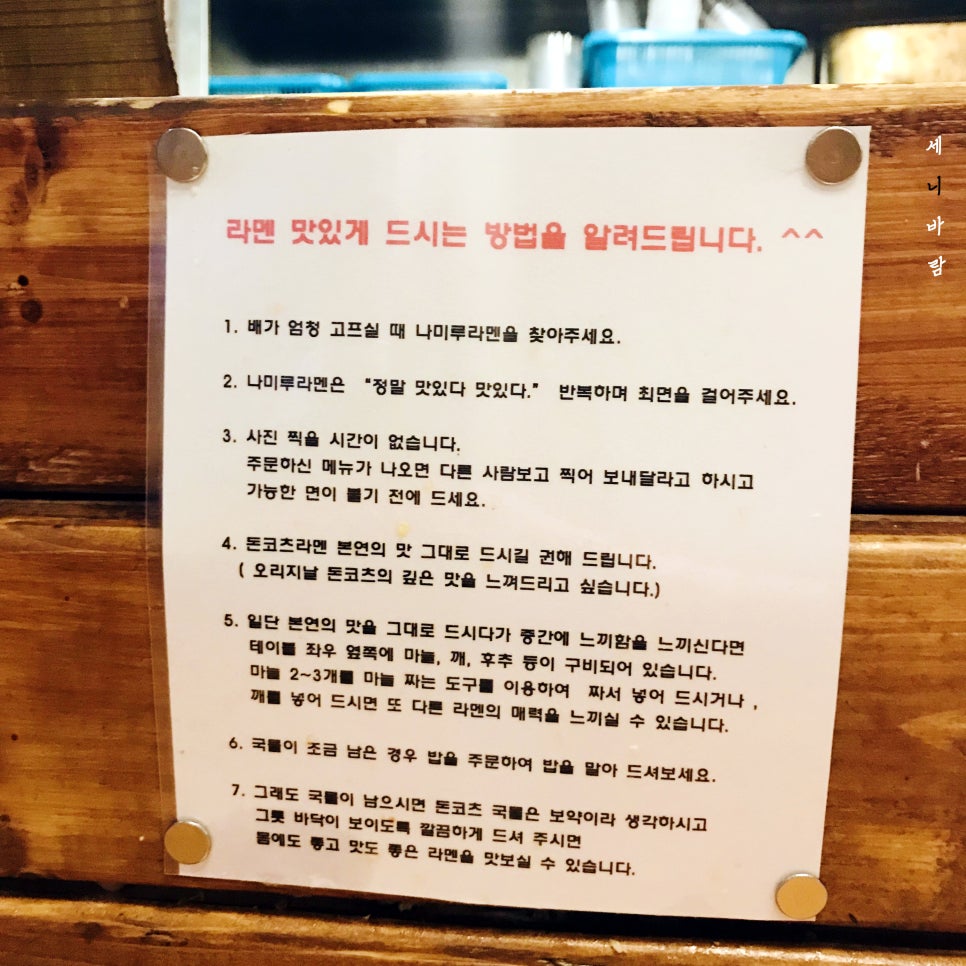 라멘 맛있게 드시는 방법을 알려드립니다. ^^
1. 배가 엄청 고프실 때 나미루라멘을 찾아주세요.
2. 나미루라멘은 “정말 맛있다 맛있다.” 반복하며 최면을 걸어주세요.
3. 사진 찍을 시간이 없습니다.
주문하신 메뉴가 나오면 다른 사람보고 찍어 보내달라고 하시고
가능한 면이 불기 전에 드세요.
4. 돈코츠라멘 본연의 맛 그대로 드시길 권해 드립니다.
( 오리지날 돈코츠의 깊은 맛을 느껴드리고 싶습니다.)
5. 일단 본연의 맛을 그대로 드시다가 중간에 느끼함을 느끼신다면
테이블 좌우 옆쪽에 마늘, 깨, 후추 등이 구비되어 있습니다.
마늘 2~3개를 마늘 짜는 도구를 이용하여 짜서 넣어 드시거나 ,
깨를 넣어 드시면 또 다른 라멘의 매력을 느끼실 수 있습니다.
6. 국물이 조금 남은 경우 밥을 주문하여 밥을 말아 드셔보세요.
7. 그래도 국물이 남으시면 돈코츠 국물은 보약이라 생각하시고
그릇 바닥이 보이도록 깔끔하게 드셔 주시면
몸에도 좋고 맛도 좋은 라멘을 맛보실 수 있습니다.
세니바람